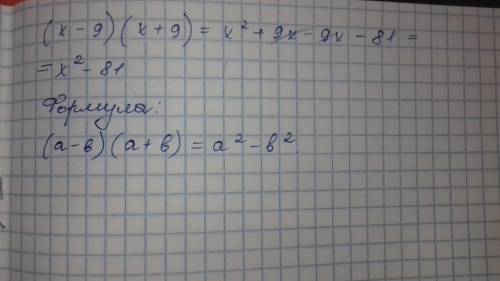 (x-9)(x+9) = x² + 9x - 9x - 81 =
= x² - 81
Формула:
(а-в)(а+в) = а² - в²